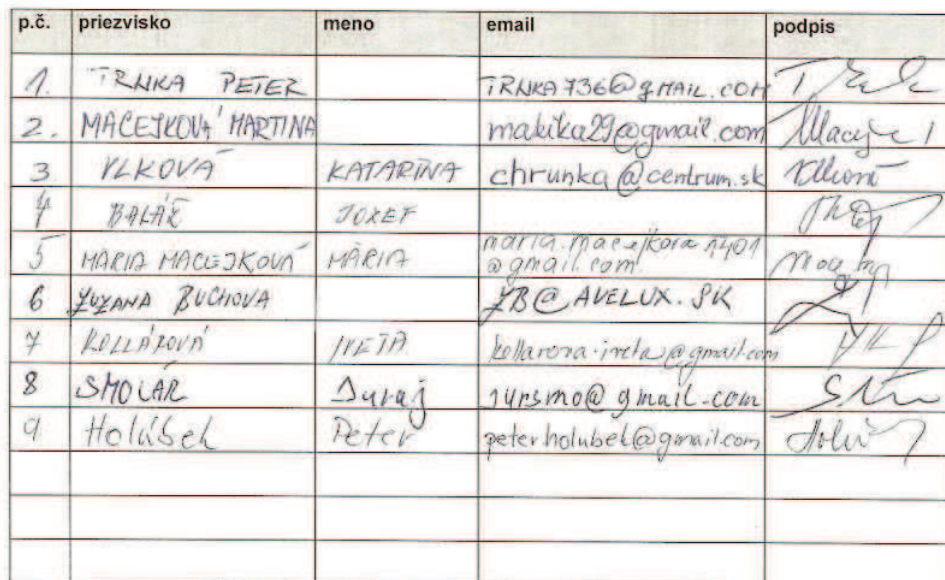 p.č. priezvisko meno email podpis
1. TRNKA PETER TRNKA736@gMAIL.COM
2. MACEJKOVÁ MARTINA makika29@gmail.com
3 VLKOVÁ KATARÍNA chrunka@centrum.sk
4 BALÁŽ JOZEF
5 MARIA MACEJKOVÁ MÁRIA maria.macejkova1401
@gmail.com
6 ZUZANA BUCHOVA ZB@AVELUX.SK
7 KOLLÁROVÁ IVETA kollarova.iveta@gmail.com
8 SMOLÁR Juraj jursmo@gmail.com
9 Holúbek Peter peterholubek@gmail.com